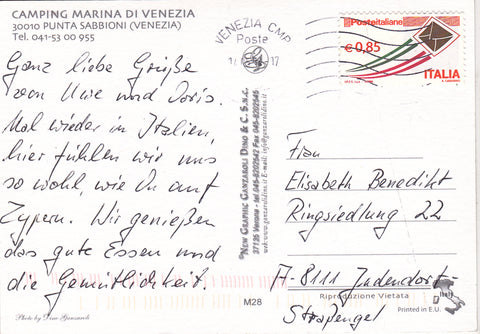 CAMPING MARINA DI VENEZIA
30010 PUNTA SABBIONI (VENEZIA)
Tel. 041-53 00 955
Ganz liebe Grüße
von Uwe und Doris.
Mal wieder in Italien,
hier fühlen wir uns
so wohl, wie Du auf
Zypern. Wir genießen
das gute Essen und
die Gemütlichkeit
Photo by Dino Ganzaroli
VENEZIA CMP
Poste
©NEW GRAPHIC GANZAROLI DINO & C. S.N.C.
37135 Verona - tel. 045-8202542 Fax 045-8202545
M28
Posteitaliane
€ 0,85
ITALIA
Frau
Elisabeth Benedikt
Ringsiedlung 22
A-8111 Judendorf-
Straßengel
Riproduzione Vietata
Printed in E.U.